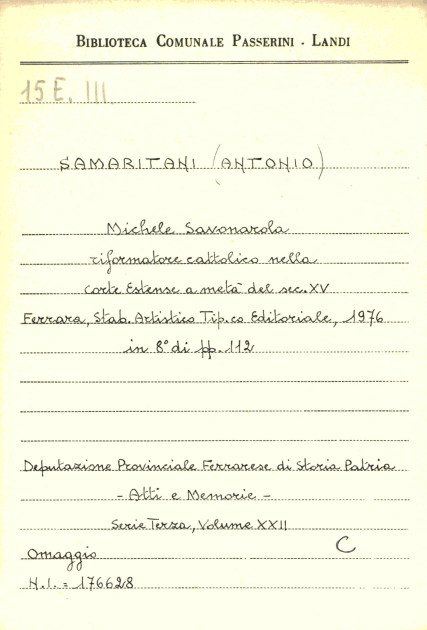 BIBLIOTECA COMUNALE PASSERINI - LANDI
15 E. III
SAMARITANI (ANTONIO)
Michele Savonarola
riformatore cattolico nella
corte Estense a metà del sec. XV
Ferrara, Stab. Artistico Tip.co Editoriale, 1976
in 8° di pp. 112
Deputazione Provinciale Ferrarese di Storia Patria
- Atti e Memorie -
Serie Terza, Volume XXII
Omaggio C
N.I. = 176628